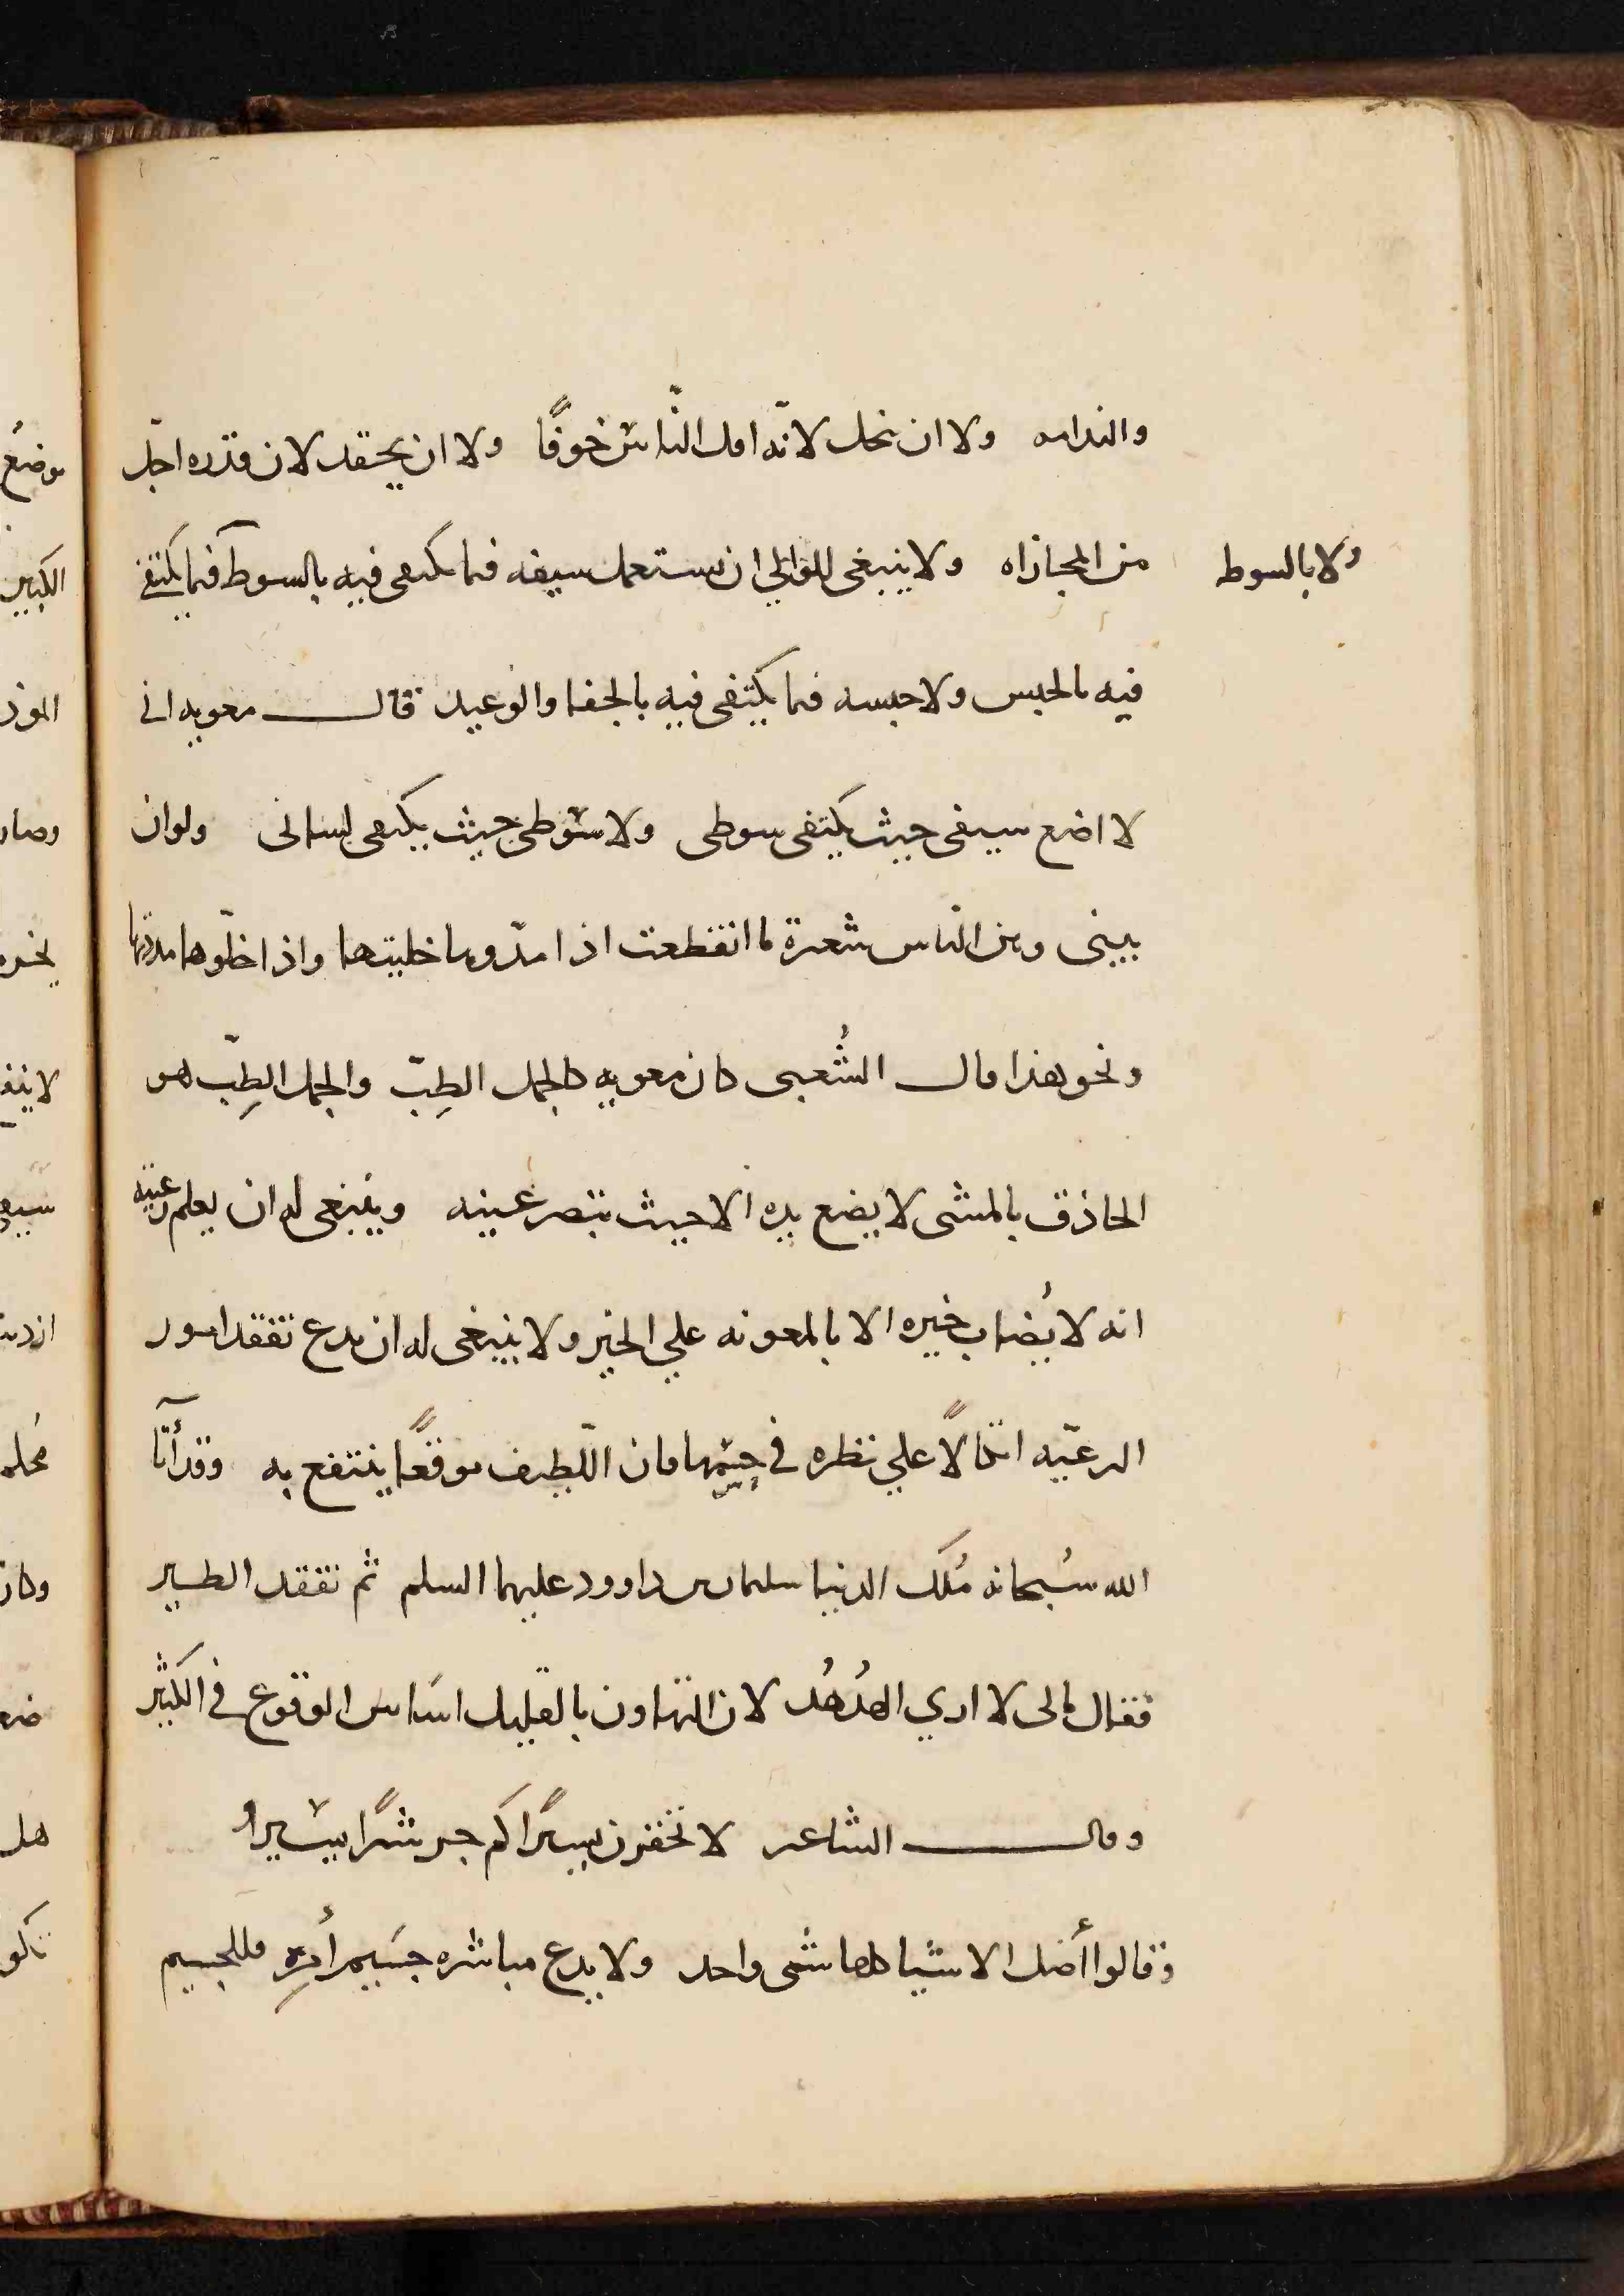 والندامه ولا ان يبخل لانه اول الناس خوفًا ولا ان يحقد لان قدره اجلّ
من المجازاه ولا ينبغي للوالي ان يستعمل سيفه فيما يكتفي فيه بالسوط فيما يكتفي
ولا بالسوط
فيه بالحبس ولا حبسه فيما يكتفي فيه بالجفا والوعيد قال معويه اني
لا اضع سيفي حيث يكتفي سوطي ولا سوطي حيث يكفي لساني ولو ان
بيني وبين الناس شعرة ما انقطعت اذا مدّوها خليتها واذا خلّوها مددتها
ونحو هذا قال الشُعبي كان معويه كالجمل الطِبّ والجمل الطِبّ هو
الحاذق بالمشي لا يضع يده الا حيث تبصر عينه وينبغي له ان يعلم رعيته
انه لا يُصاب خيره الا بالمعونه علي الخير ولا ينبغي له ان يدع تفقد امور
الرعيّه اتكالًا علي نظره في جسيمها فان اللّطيف موقعًا ينتفع به وقد أتا
الله سُبحانه مُلك الدنيا سليمان بن داوود عليهما السلم ثم تفقد الطير
فقال مالي لا اري الهُدهُد لان التهاون بالقليل اساس الوقوع في الكثير
وقال الشاعر لا تحقرن يسيرًا كم جر شرًا يسيرُ
وقالوا أفضل الاشيا كلها شي واحد ولا يدع مباشره جسيم أمرِه فللجسيم